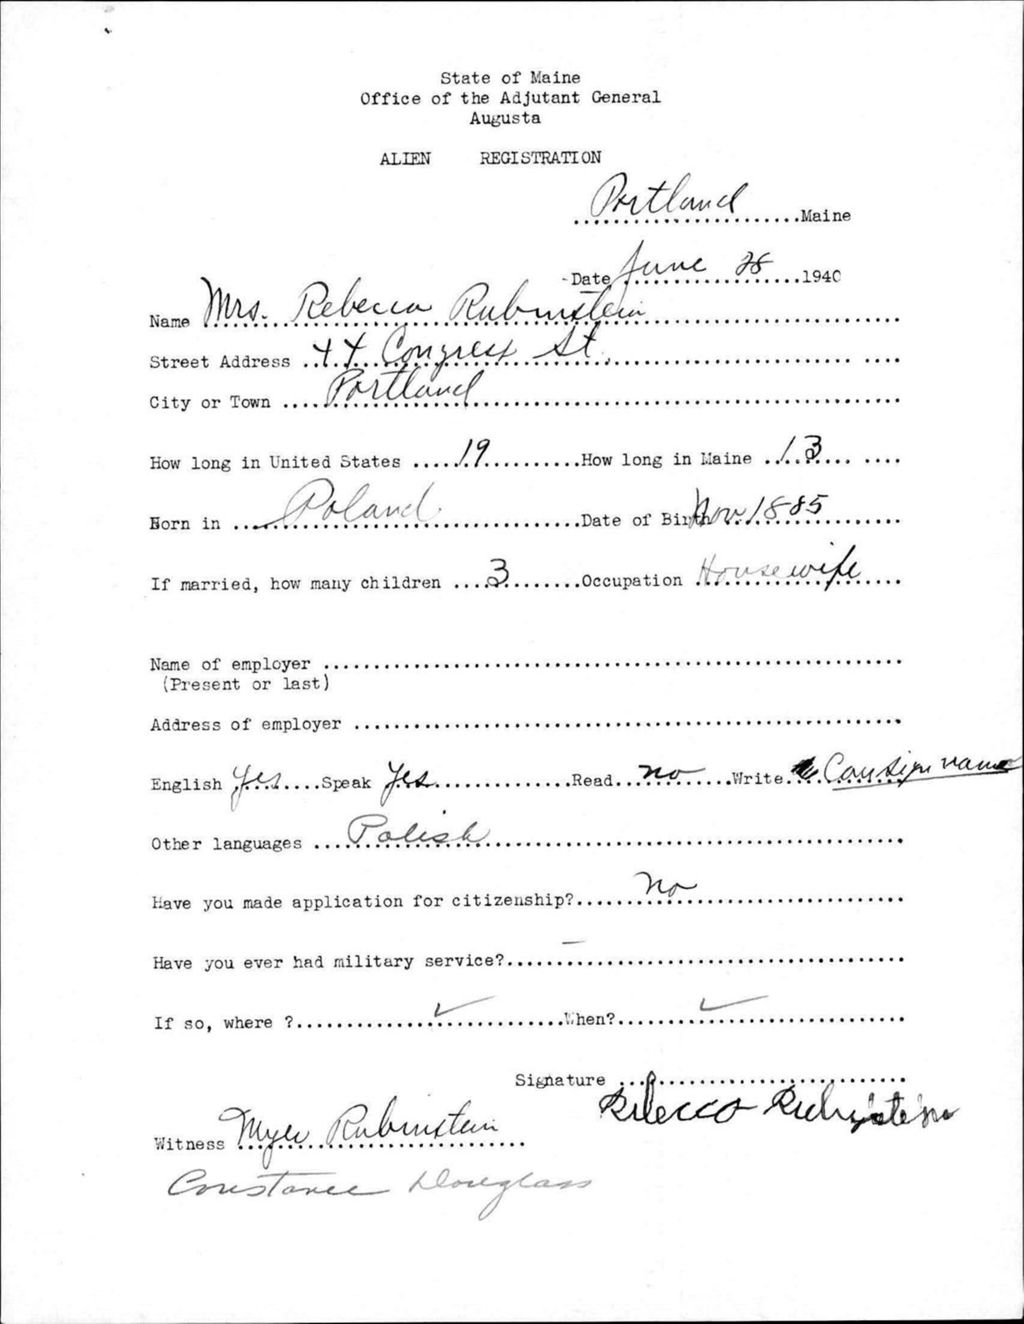 State of Maine
Office of the Adjutant General
Augusta
ALIEN REGISTRATION
Portland Maine
Date June 28 1940
Name Mrs. Rebecca Rubinstein
Street Address 44 Congress St.
City or Town Portland
How long in United States 19 How long in Maine 13
Born in Poland Date of Birth Nov 1885
If married, how many children 3 Occupation Housewife
Name of employer
(Present or last)
Address of employer
English Yes Speak Yes Read no Write Can sign name
Other languages Polish
Have you made application for citizenship? no
Have you ever had military service? —
If so, where ? ✓ When? ✓
Signature Rebecca Rubinstein
Witness Myer Rubinstein
Constance Douglass